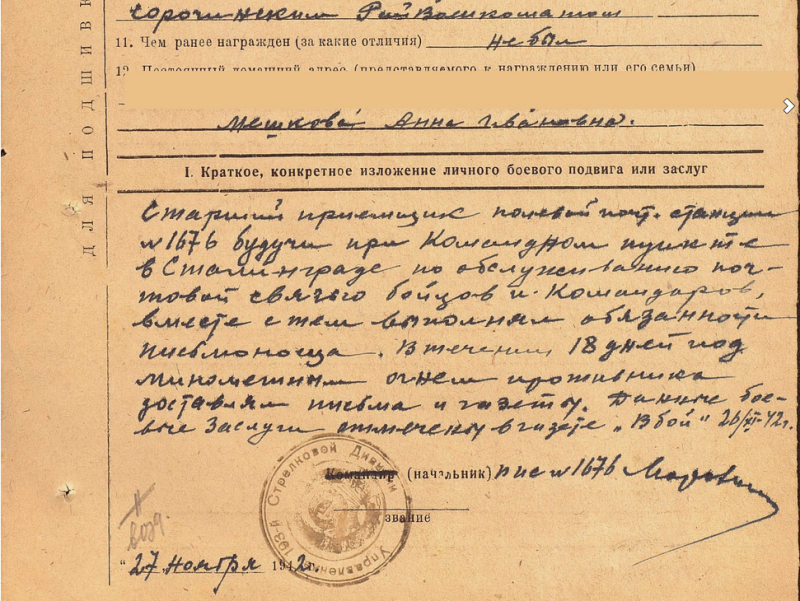 Сорочинским РайВоенкоматом
11. Чем ранее награжден (за какие отличия) не был
12. Постоянный домашний адрес (представляемого к награждению или его семьи)
Мешкова Анна Ивановна.
ДЛЯ ПОДШИВК
I. Краткое, конкретное изложение личного боевого подвига или заслуг
Старший приемщик полевой почт. станции
№ 1676 будучи при Командном пункте
в Сталинграде по обслуживанию поч-
товой связью бойцов и командиров,
вместе с тем выполнял обязанности
письмоносца. В течении 18 дней под
минометным огнем противника
доставлял письма и газеты. Данные бое-
вые заслуги отмечены в газете "В бой" 26/XI-42г.
Командир (начальник) ппс № 1676
звание
Управление 193-й Стрелковой Дивизии
"27" Ноября 1942г.